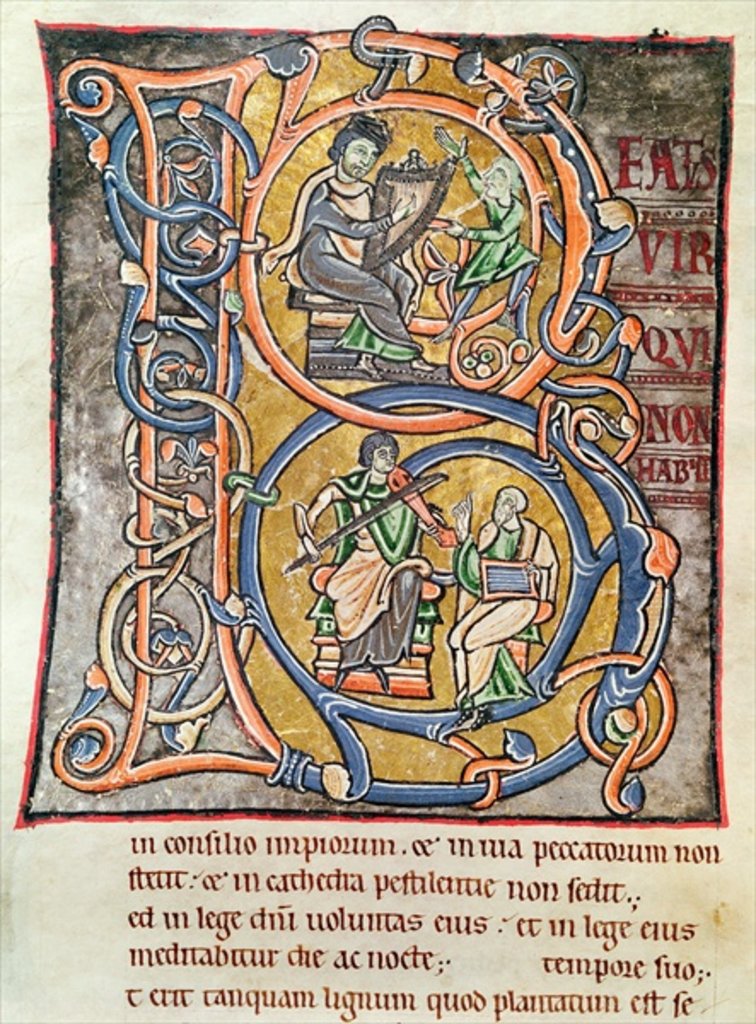 B
EATS
VIR
QVI
NON
HABIIT
in consilio impiorum. & in uia peccatorum non
stetit: & in cathedra pestilentie non sedit.;
ed in lege dn̄i uoluntas eius: et in lege eius
meditabitur die ac nocte;. tempore suo;.
t erit tanquam lignum quod plantatum est se